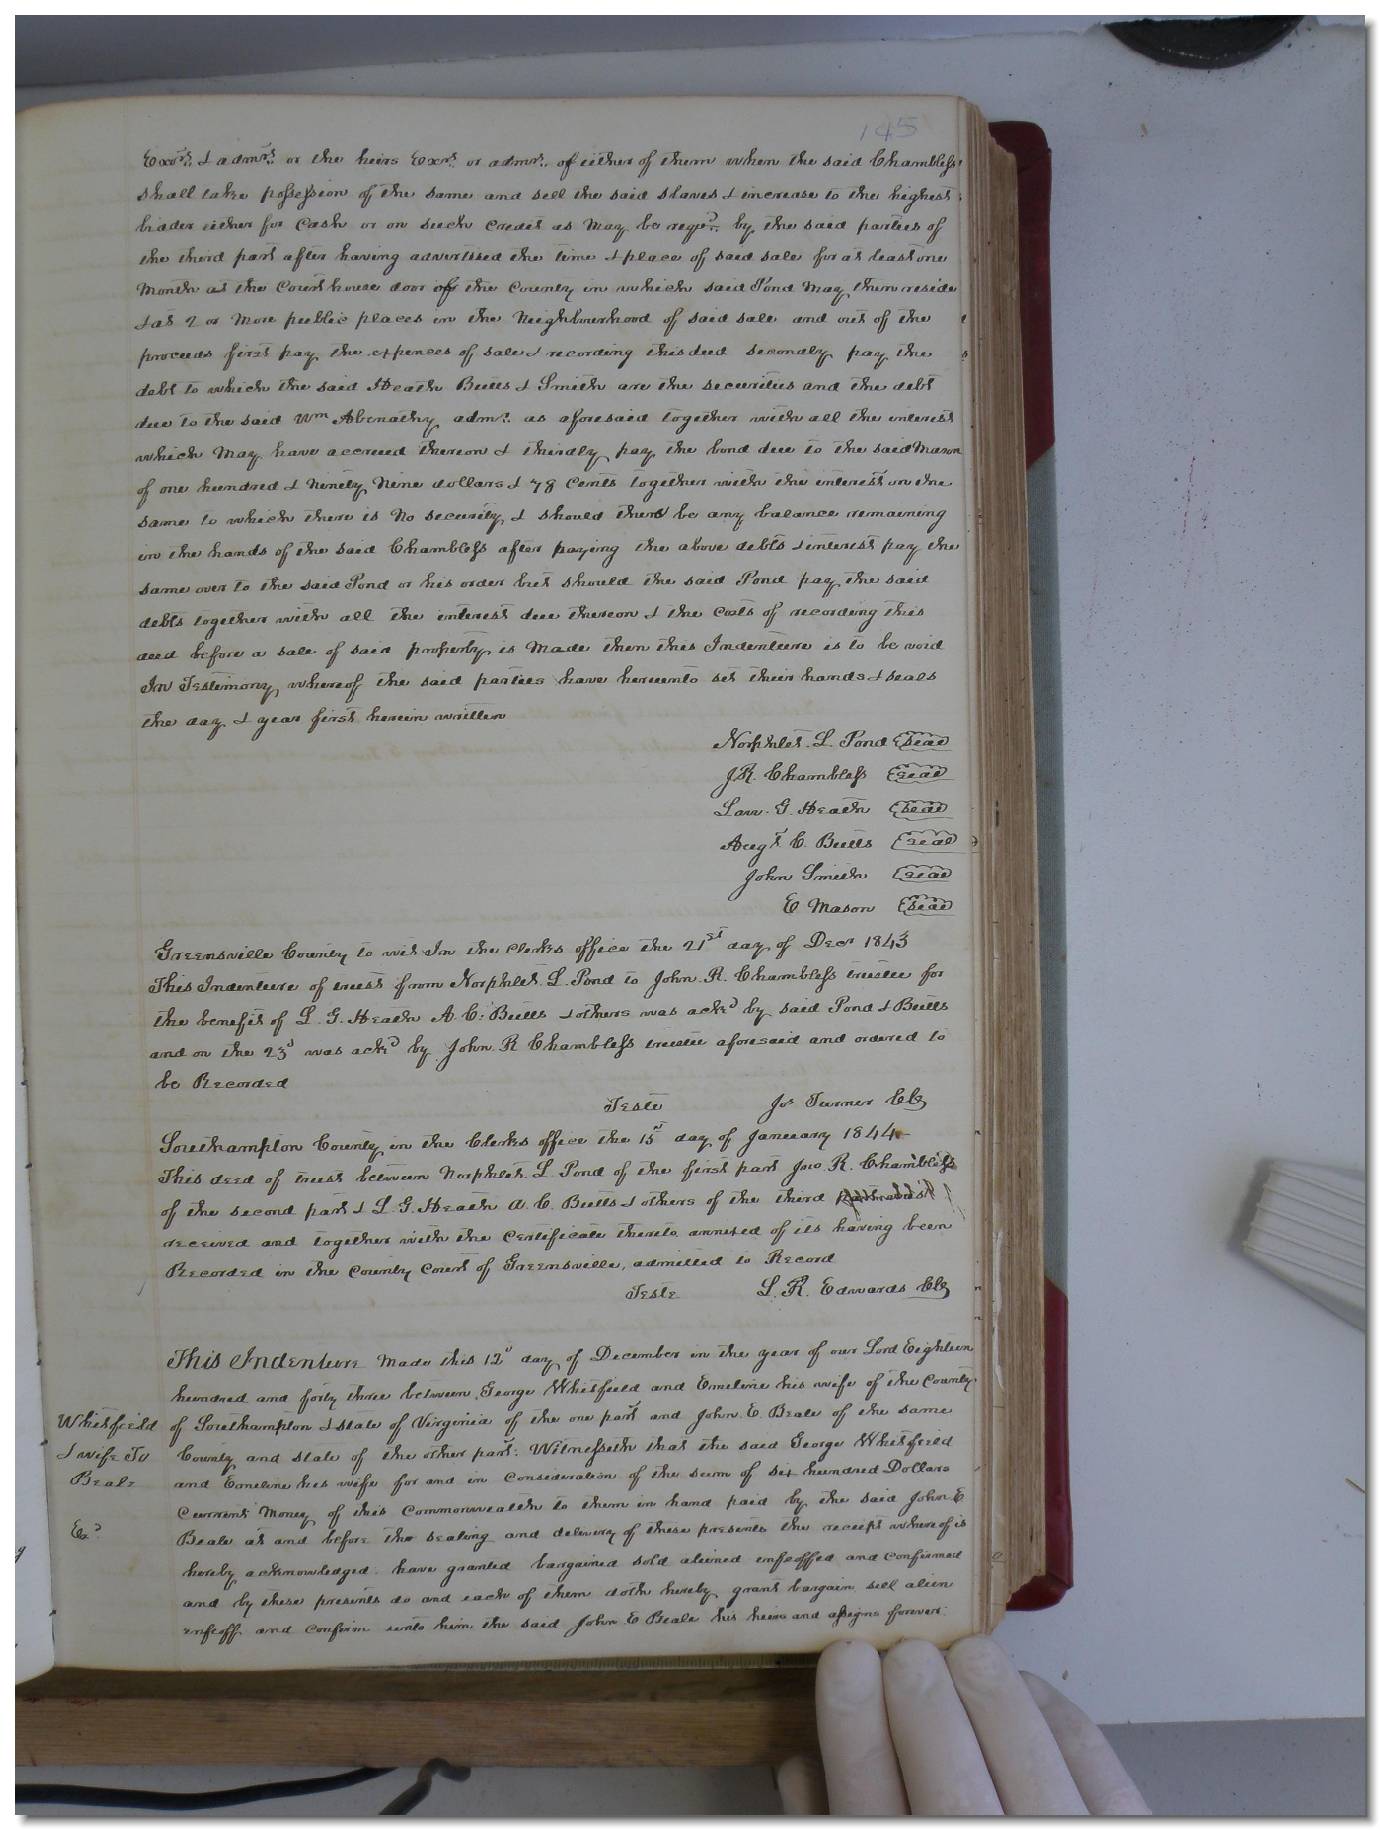 145
Exors. & admrs. or the heirs Exrs. or admrs. of either of them when the said Chambless
shall take possession of the same and sell the said slaves & increase to the highest
bidder either for Cash or on such credit as May be reqrd. by the said parties of
the third part after having advertised the time & place of said sale for at least one
Month at the Court house door of the County in which said Pond May then reside
& at 2 or More public places in the Neighbourhood of said sale and out of the
proceeds first pay the expences of sale & recording this deed secondly pay the
debt to which the said Heath Butts & Smith are the securities and the debt
due to the said Wm Abenathy admr. as aforesaid together with all the interest
which May have accrued thereon & thirdly pay the bond due to the said Mason
of one hundred & Ninety Nine dollars & 78 Cents together with the interest on the
same to which there is No security & should there be any balance remaining
in the hands of the said Chambless after paying the above debts & interest pay the
same over to the said Pond or his order but should the said Pond pay the said
debts together with all the interest due thereon & the costs of recording this
deed before a sale of said property is Made then this Indenture is to be void
In Testimony whereof the said parties have hereunto set their hands & seals
the day & year first herein written
Norphlet. L. Pond Seal
J.R. Chambless Seal
Law. G. Heath Seal
Augt. C. Butts Seal
John Smith Seal
E Mason Seal
Greensville County to wit In the Clerks office the 21st day of Decr 1843
This Indenture of trust from Norphlet. L. Pond to John. R. Chambless trustee for
the benefit of L. G. Heath A. C. Butts & others was ackd by said Pond & Butts
and on the 23d was ackd by John. R Chambless trustee aforesaid and ordered to
be Recorded
Teste Js Turner Clk
Southampton County in the Clerks office the 15th day of January 1844
This deed of trust between Norphlet. L. Pond of the first part Jno. R. Chambless
of the second part & L. G. Heath A. C. Butts & others of the third part was
received and together with the Certificate thereto annexed of its having been
Recorded in the County Court of Greensville, admitted to Record
Teste L. R. Edwards Clk
This Indenture Made this 12th day of December in the year of our Lord Eighteen
hundred and forty three between George Whitfield and Emeline his wife of the County
Whitfield
& wife To
Beale
of Southampton & state of Virginia of the one part and John. E. Beale of the same
County and state of the other part. Witnesseth that the said George Whitfield
and Emeline his wife for and in Consideration of the sum of six hundred Dollars
Current Money of this Commonwealth to them in hand paid by the said John. E
Beale at and before the sealing and delivery of these presents the receipt whereof is
hereby acknowledged. have granted bargained sold aliened enfeoffed and confirmed
and by these presents do and each of them doth hereby grant bargain, sell alien
enfeoff and confirm unto him the said John E Beale his heirs and assigns forever.